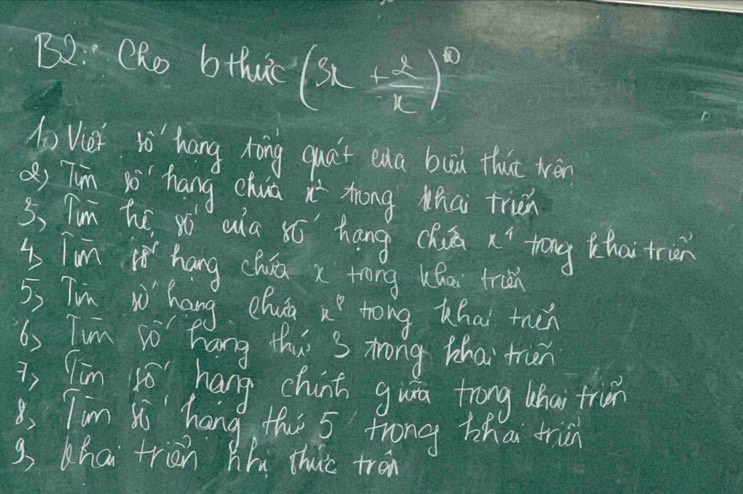 B2: Cho bthức (3x + 2/x)^10
1) Viết số hạng tổng quát của biểu thức trên
2) Tìm số hạng chứa x² trong khai triển
3) Tìm hệ số của số hạng chứa x⁴ trong khai triển
4) Tìm số hạng chứa x trong khai triển
5) Tìm số hạng chứa x⁸ trong khai triển
6) Tìm số hạng thứ 3 trong khai triển
7) Tìm số hạng chính giữa trong khai triển
8) Tìm số hạng thứ 5 trong khai triển
9) Khai triển nhị thức trên